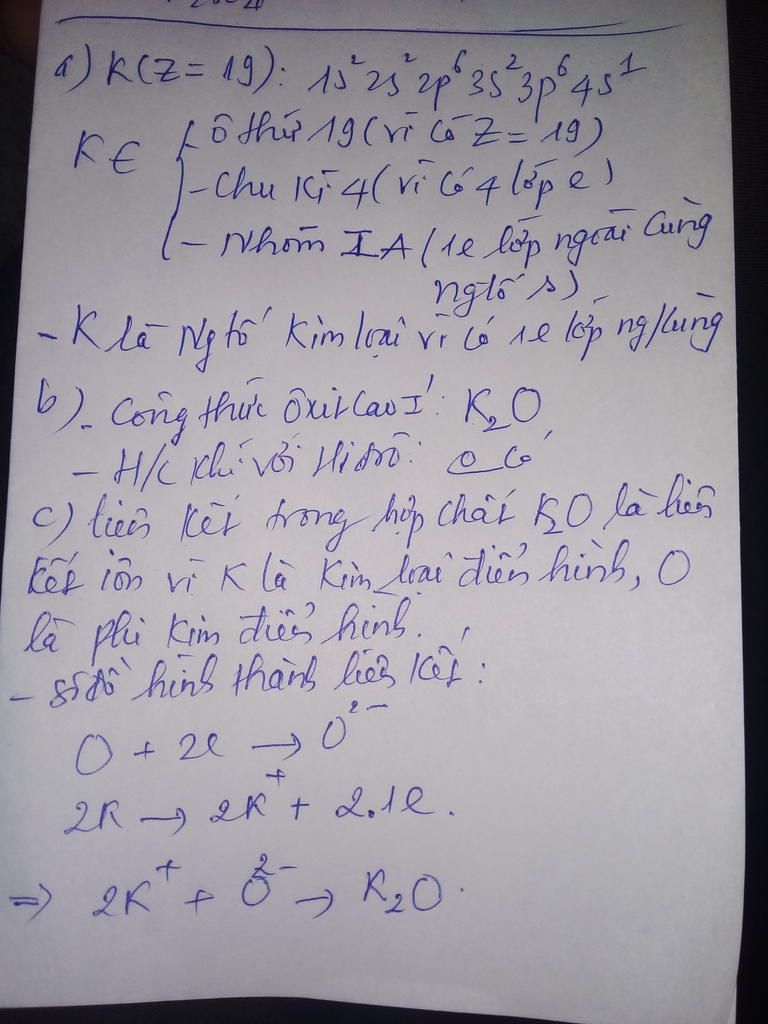 a) K(Z = 19): 1s²2s²2p⁶3s²3p⁶4s¹
K ∈ { - ô thứ 19 (vì có Z = 19)
- Chu Kì 4 (vì có 4 lớp e)
- Nhóm IA (1e lớp ngoài cùng
ngtố s)
- K là Ng tố Kim loại vì có 1e lớp ng/cùng
b) - Công thức ôxit cao I: K₂O
- H/c khí với Hiđrô: o có
c) liên kết trong hợp chất K₂O là liên
kết iôn vì K là Kim loại điển hình, O
là phi kim điển hình.
- sơ đồ hình thành liên kết:
O + 2e → O²⁻
2K → 2K⁺ + 2.1e.
⇒ 2K⁺ + O²⁻ → K₂O.